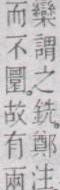 欒謂之銑。鄭注
而不圜。故有兩